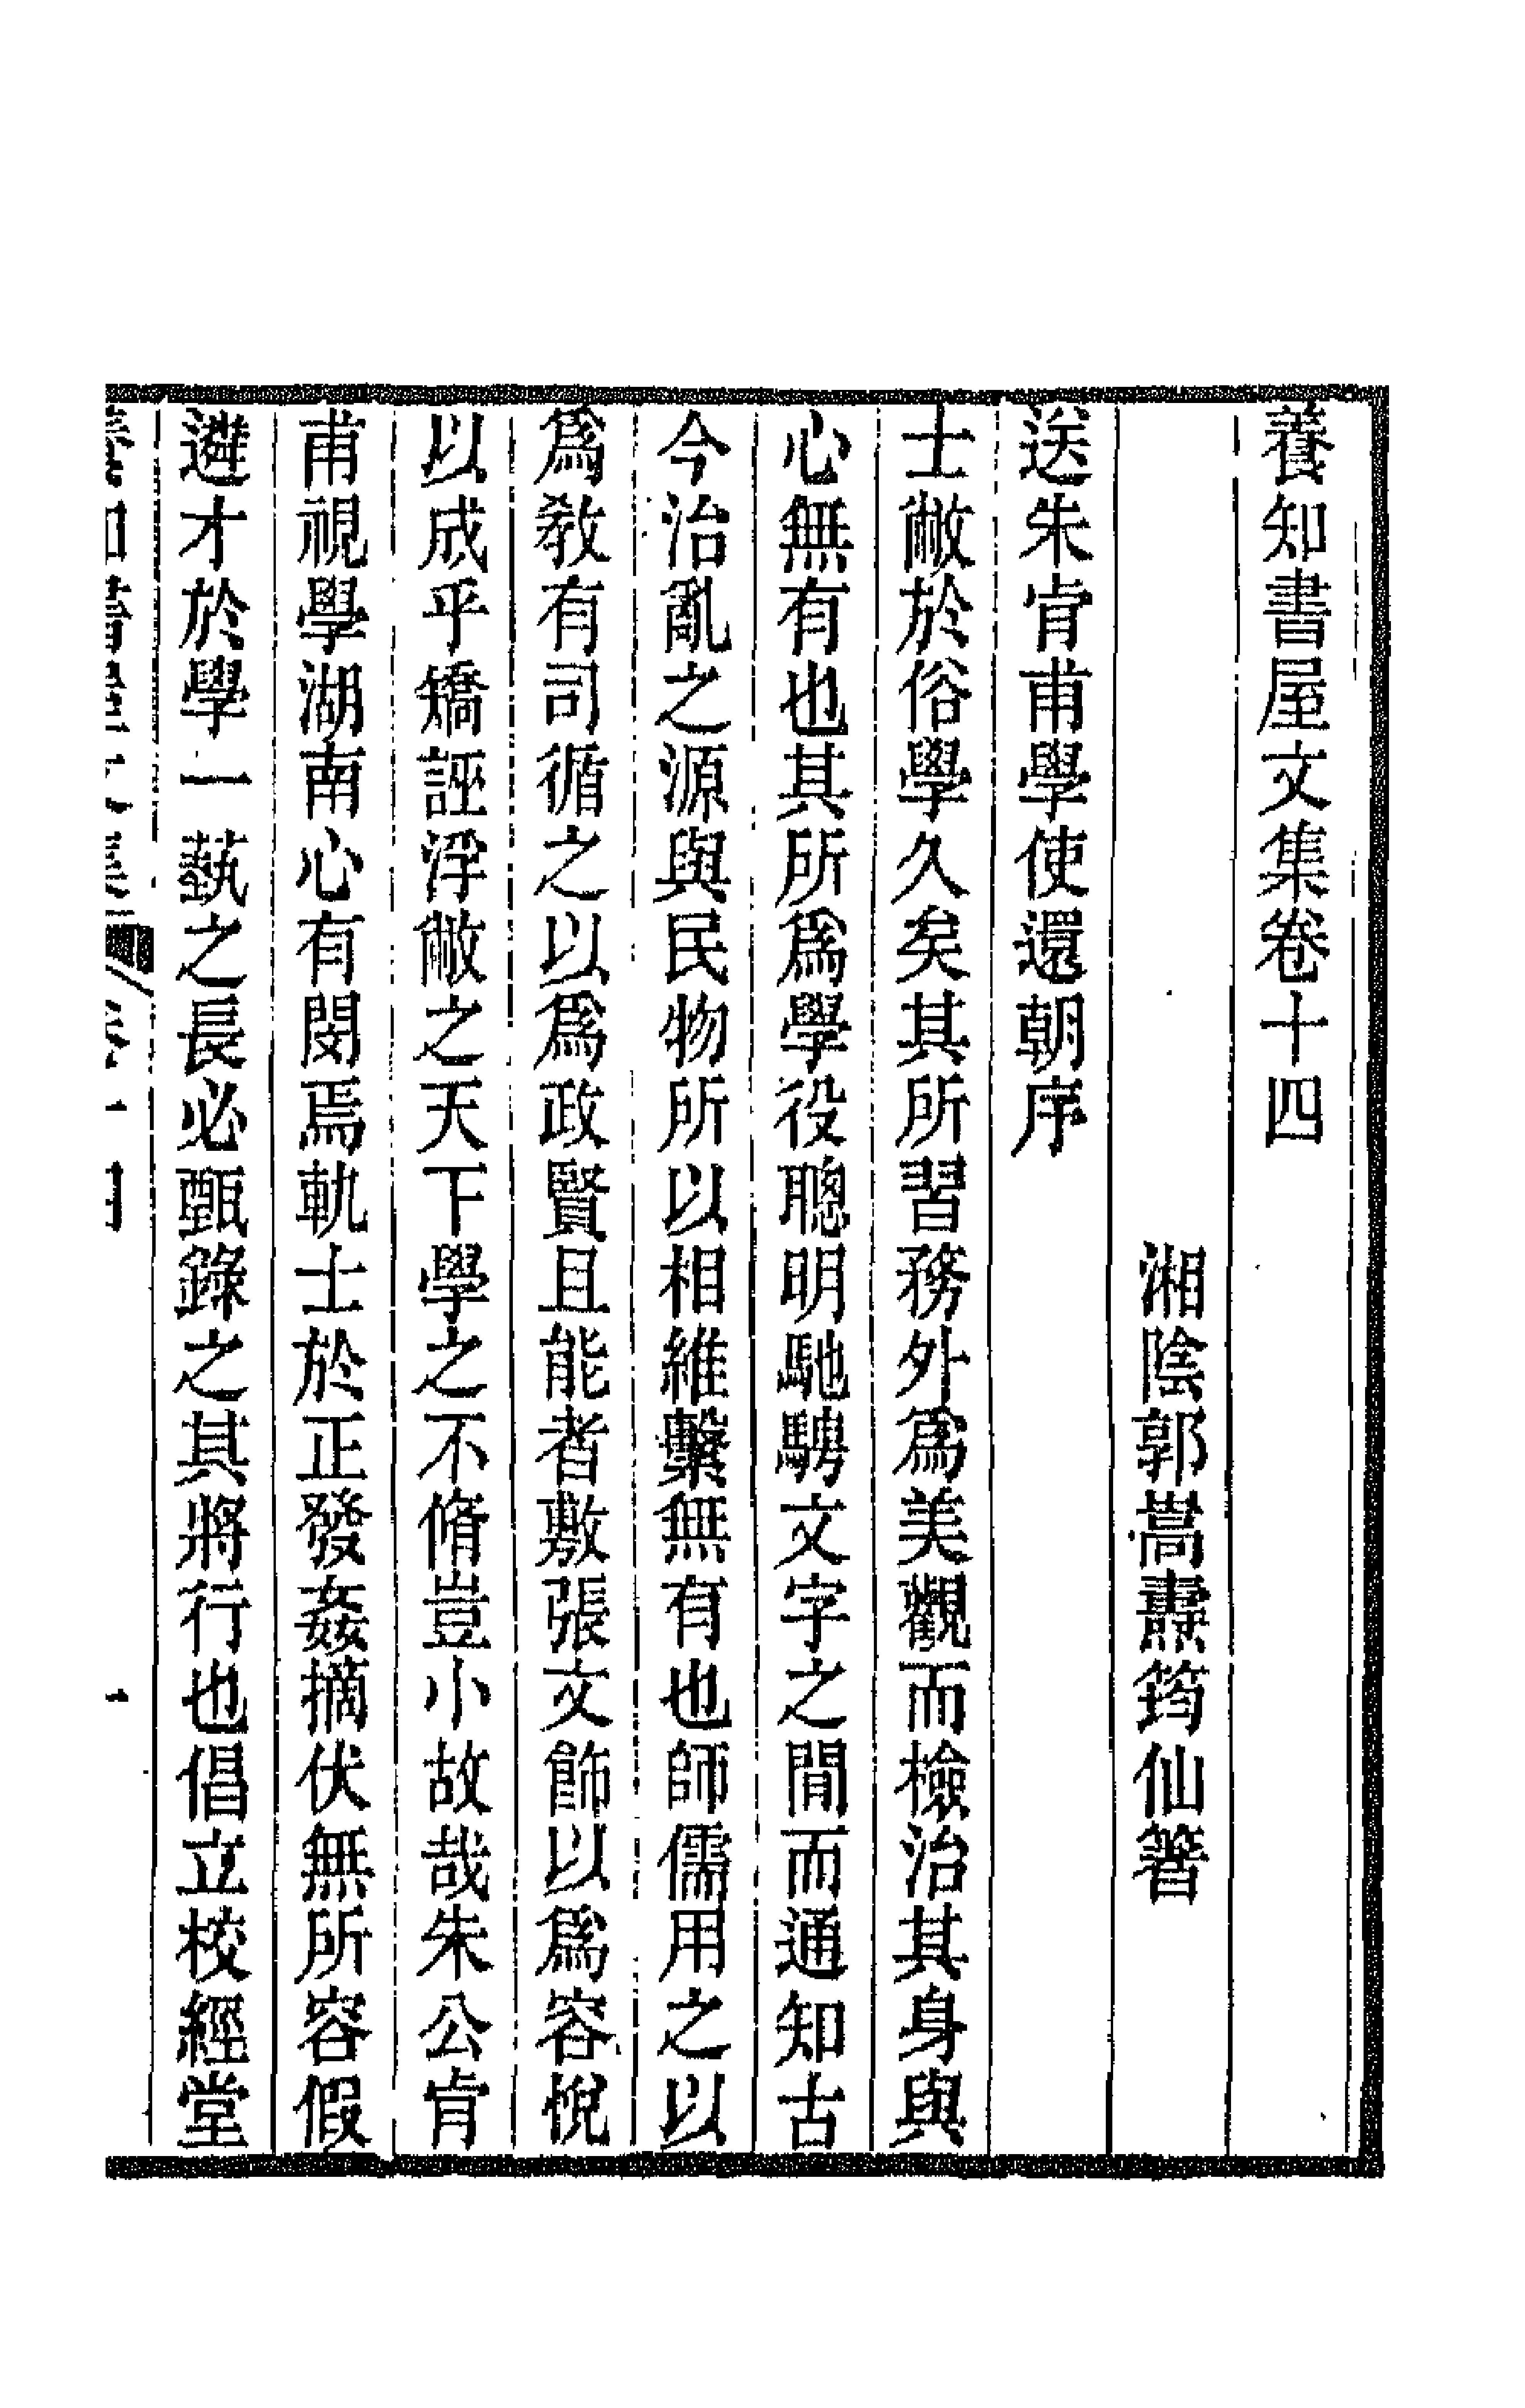 養知書屋文集卷十四
湘陰郭嵩燾筠仙箸
送朱肯甫學使還朝序
士敝於俗學久矣其所習務外爲美觀而檢治其身與
心無有也其所爲學役聰明馳騁文字之閒而通知古
今治亂之源與民物所以相維繫無有也師儒用之以
爲敎有司循之以爲政賢且能者敷張文飾以爲容悅
以成乎矯誣浮敝之天下學之不脩豈小故哉朱公肯
甫視學湖南心有閔焉軌士於正發姦摘伏無所容假
遴才於學一蓺之長必甄錄之其將行也倡立校經堂